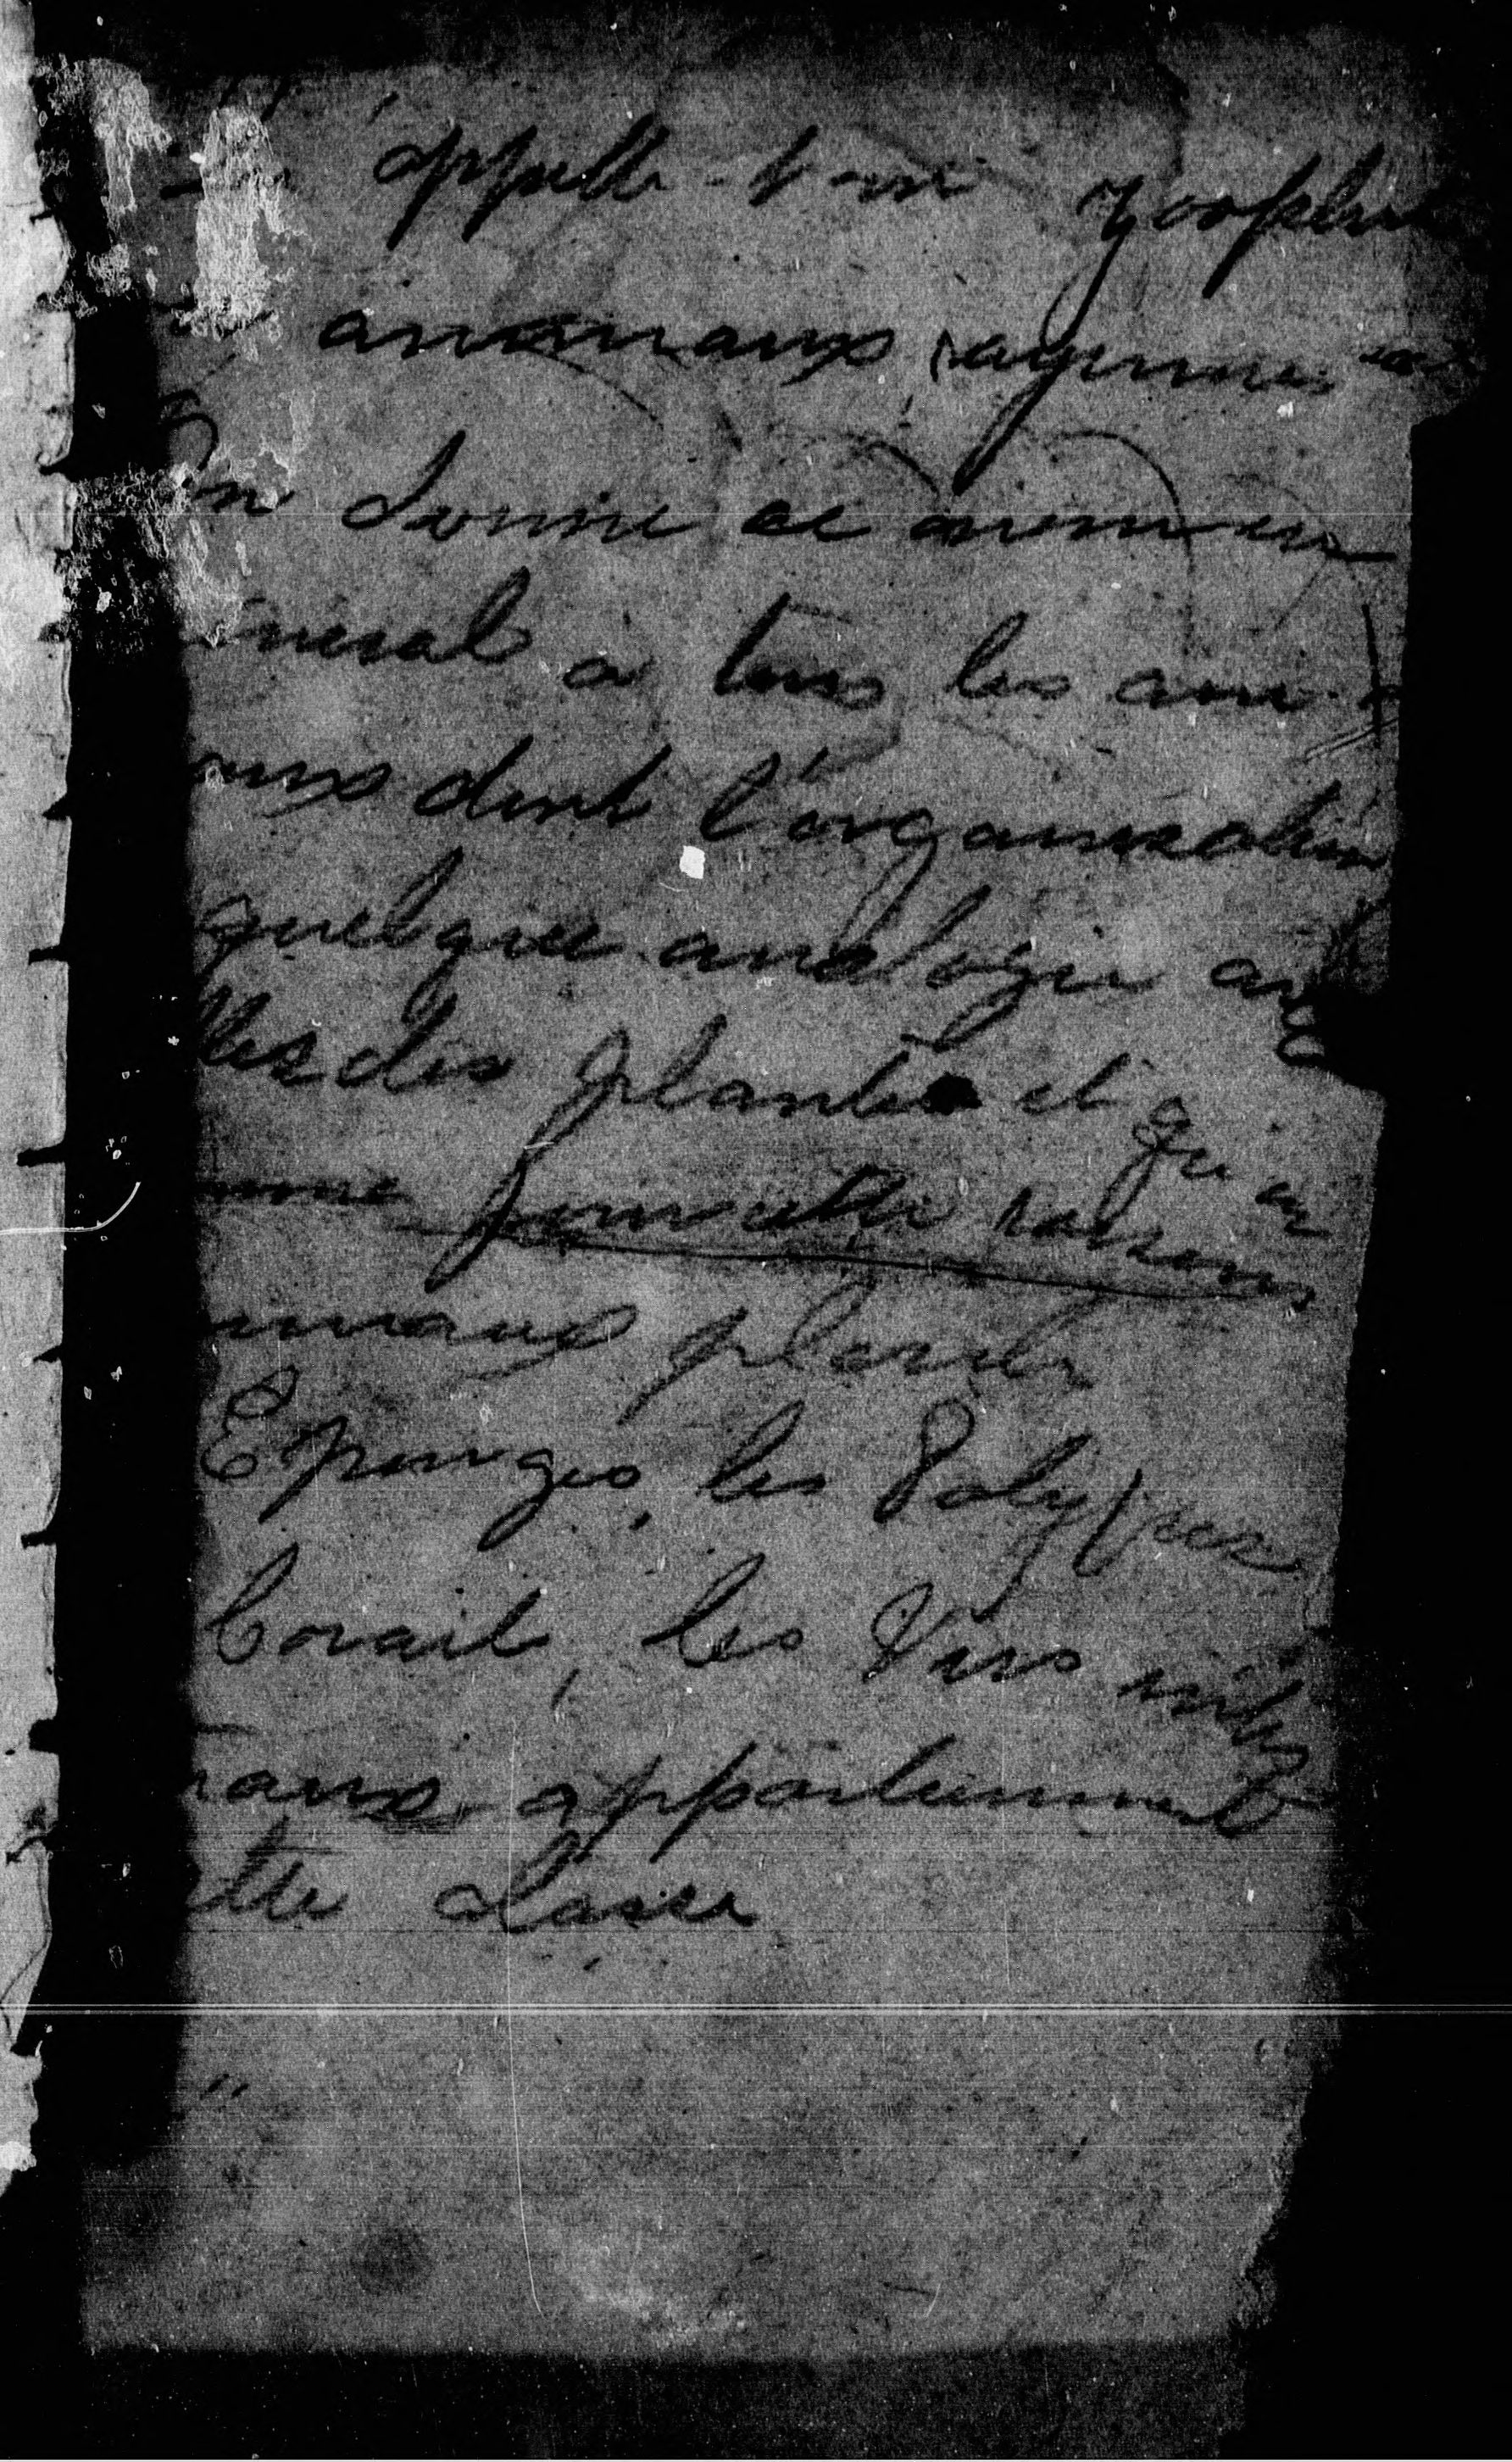 appelle-t-on zoophy
animaux rayonnés
On donne ce nom en
néral à tous les ani
aux dont l'organisation
quelque analogie avec
lles des plantes et qu'on
mme pour cette raison
imaux plantes
Eponges, les Polypes
Corail, les Vers intes
naux appartiennent
ette classe